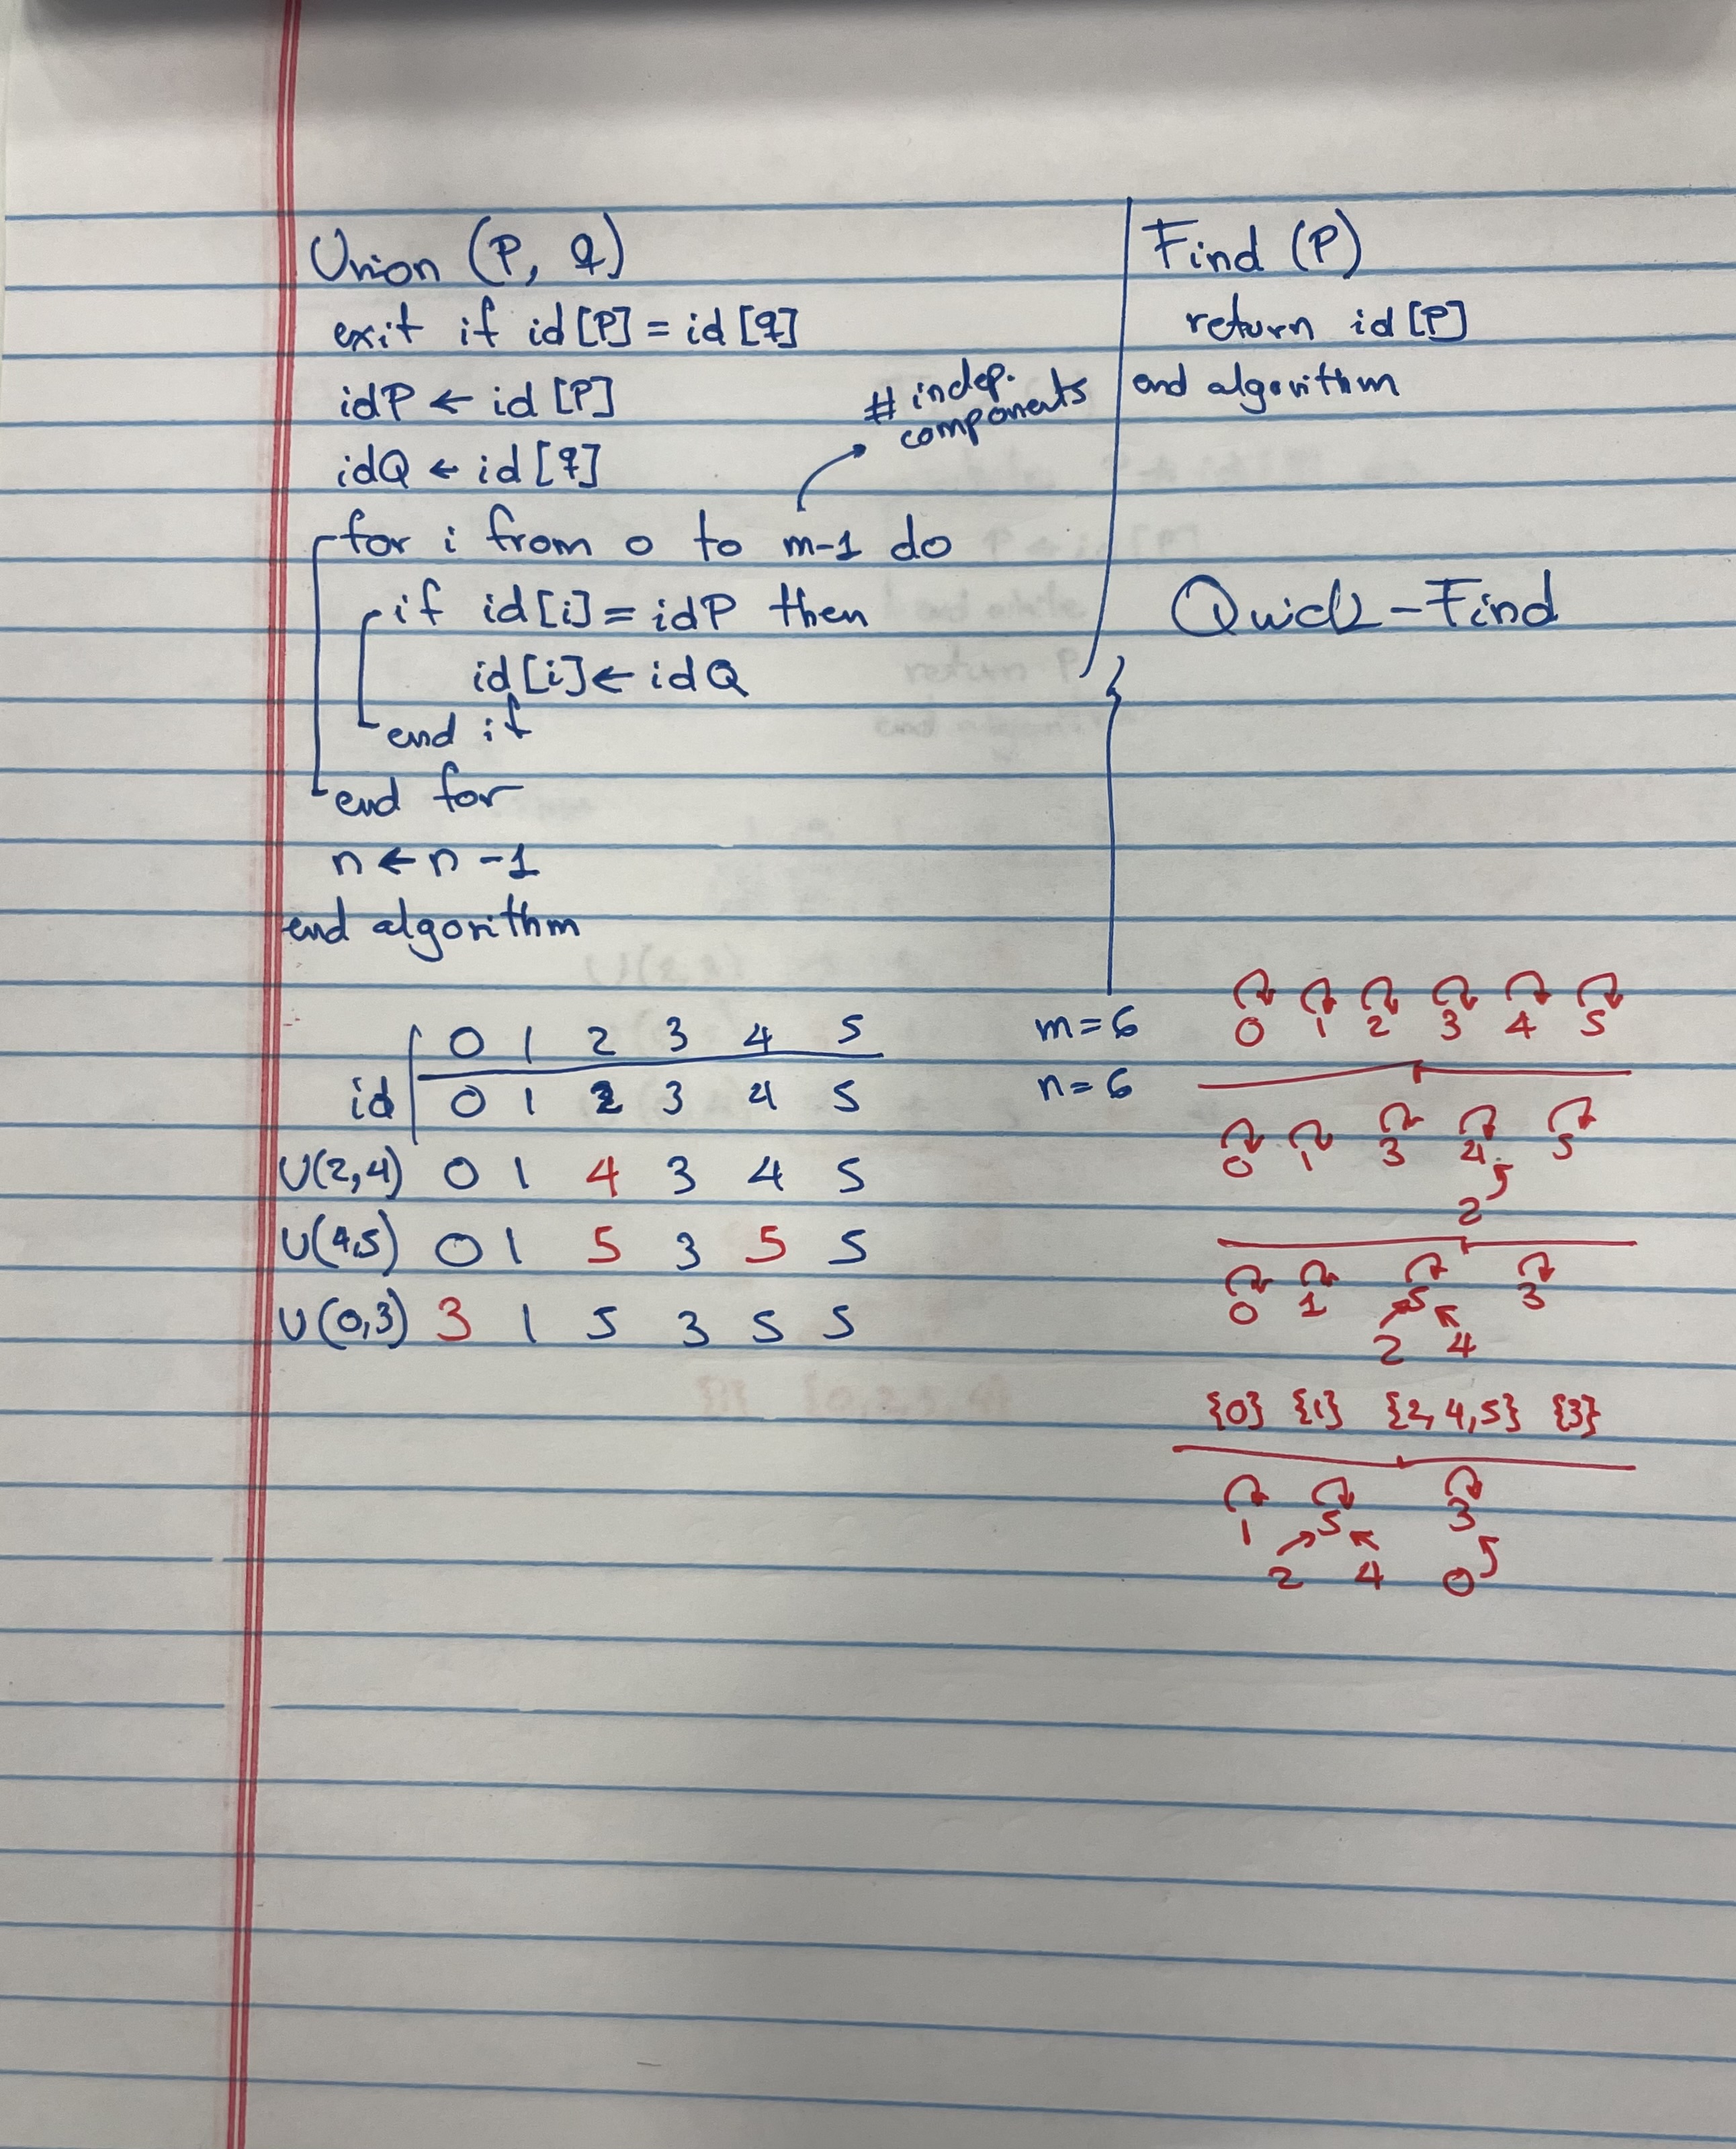 Union (P, q)
exit if id[P] = id[q]
idP ← id[P]
idQ ← id[q]
# indep. components
for i from 0 to m-1 do
if id[i] = idP then
id[i] ← idQ
end if
end for
n ← n - 1
end algorithm
Find (P)
return id[P]
end algorithm
Quick-Find
0 1 2 3 4 5
id 0 1 2 3 4 5
U(2,4) 0 1 4 3 4 5
U(4,5) 0 1 5 3 5 5
U(0,3) 3 1 5 3 5 5
m = 6
n = 6
0 1 2 3 4 5
0 1 3 4 5
2
0 1 5 3
2 4
{0} {1} {2,4,5} {3}
1 5 3
2 4 0